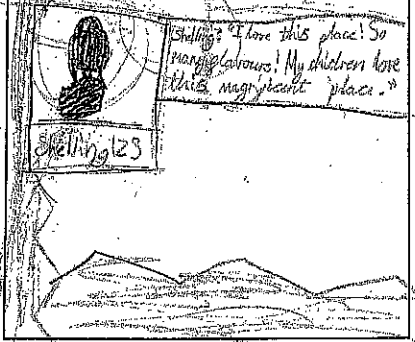 Shelling: "I love this place! So
many flavours! My children love
this magnificent place."
Shelling123